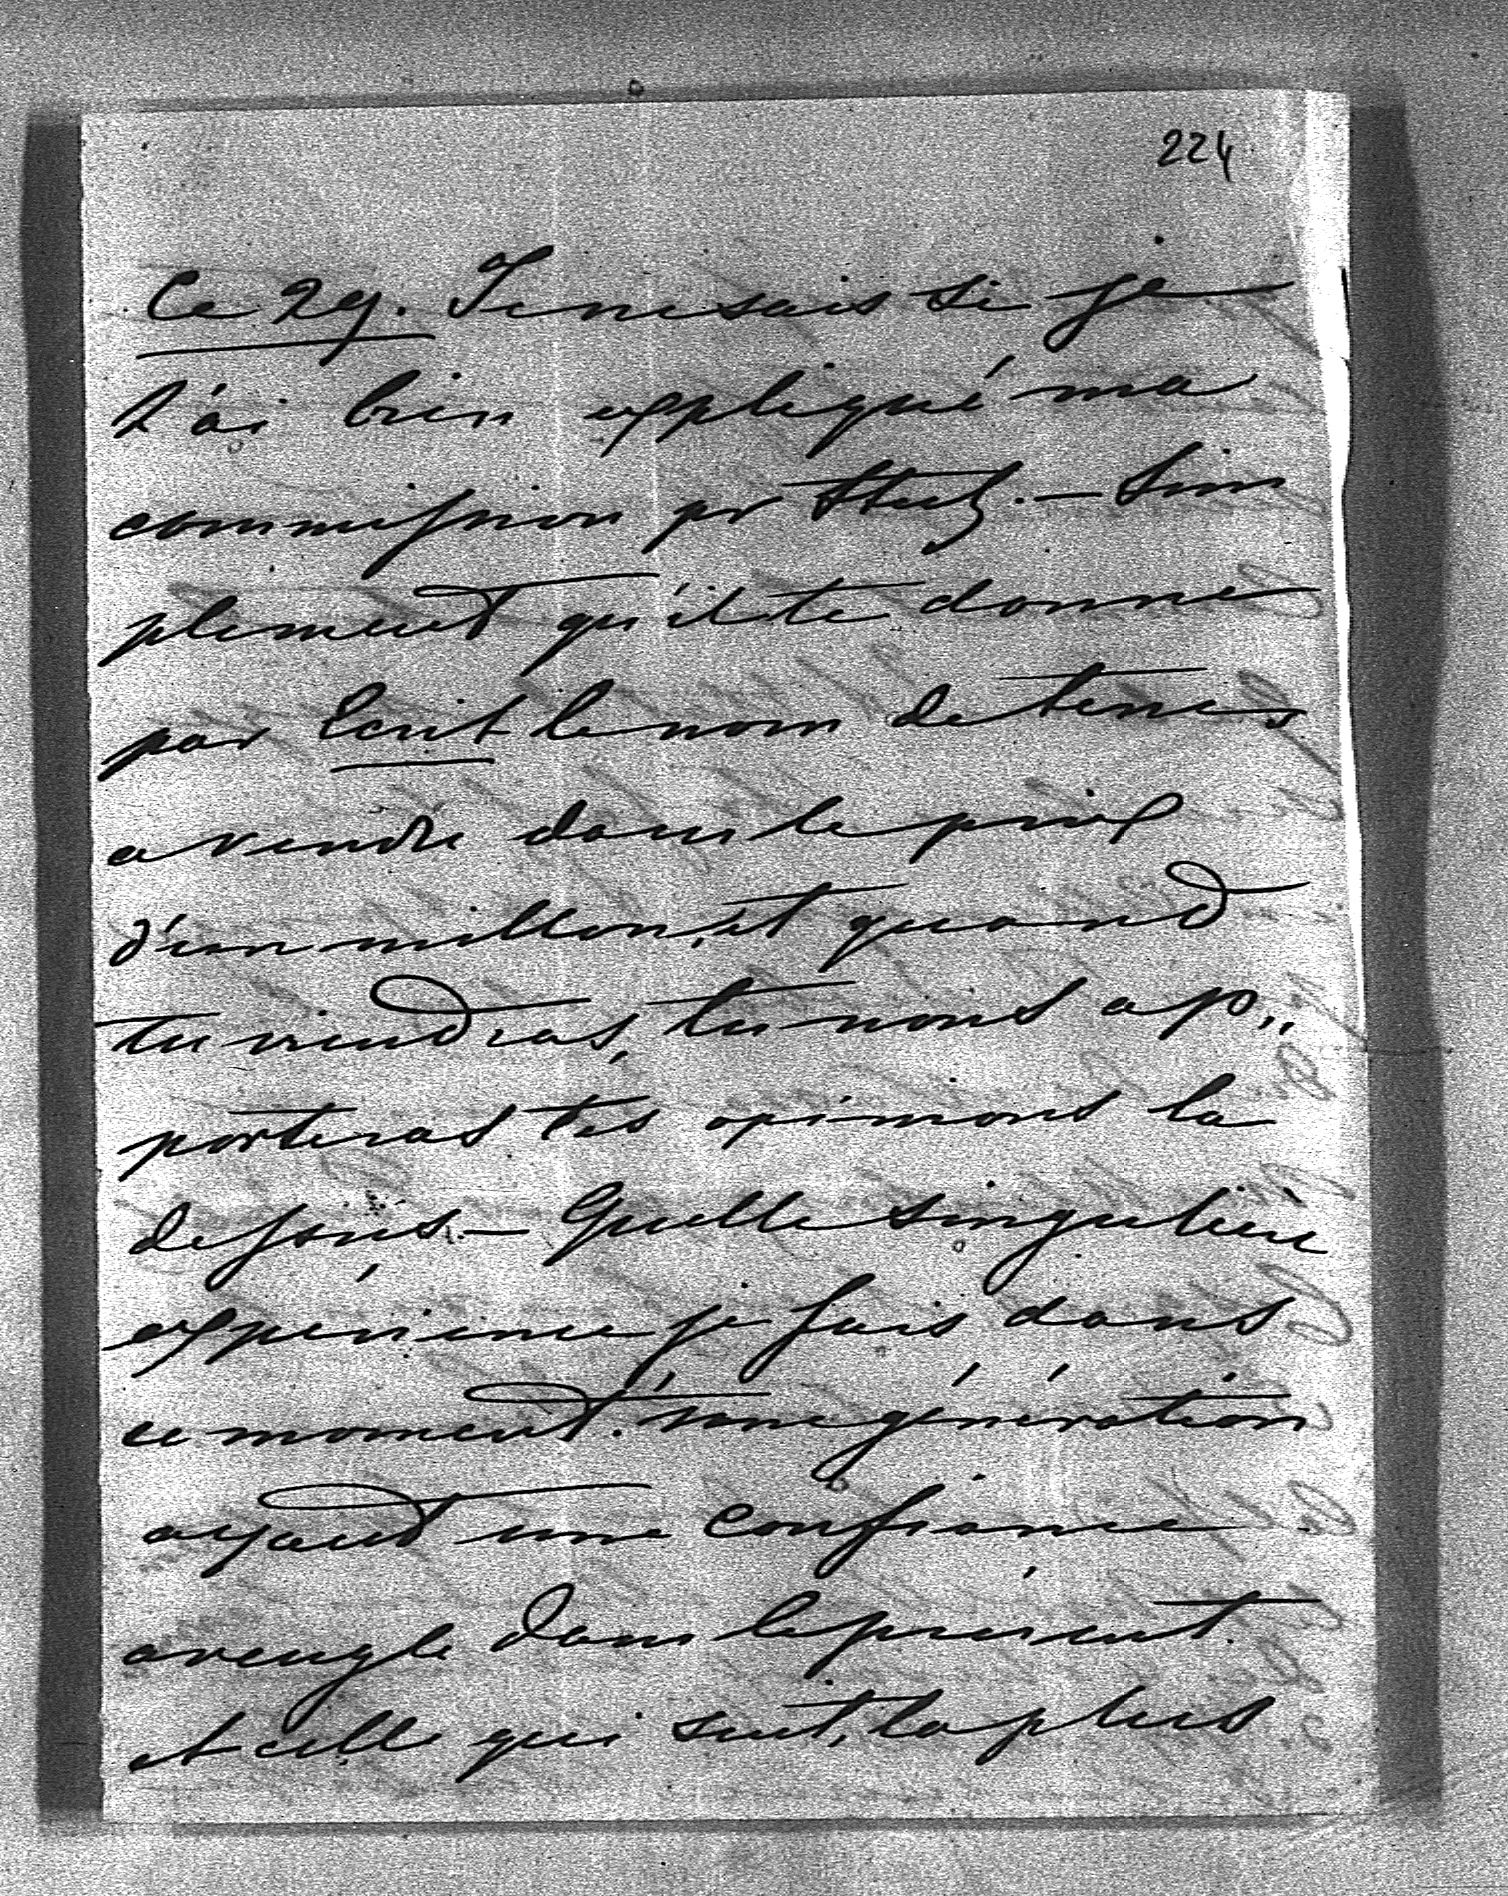 224
Ce 29. Je ne sais si je
t'ai bien expliqué ma
commission pr Stutz. — Sim
plement qu'il te donne
par Ecrit le nom de terres
a vendre dans le prix
d'un million, et quand
tu viendras, tu nous ap„
porteras tes opinions la
dessous. — Quelle singuliere
expérience je fais dans
ce moment. une génération
ayant une confiance
aveugle dans le présent.
et celle qui suit, la plus